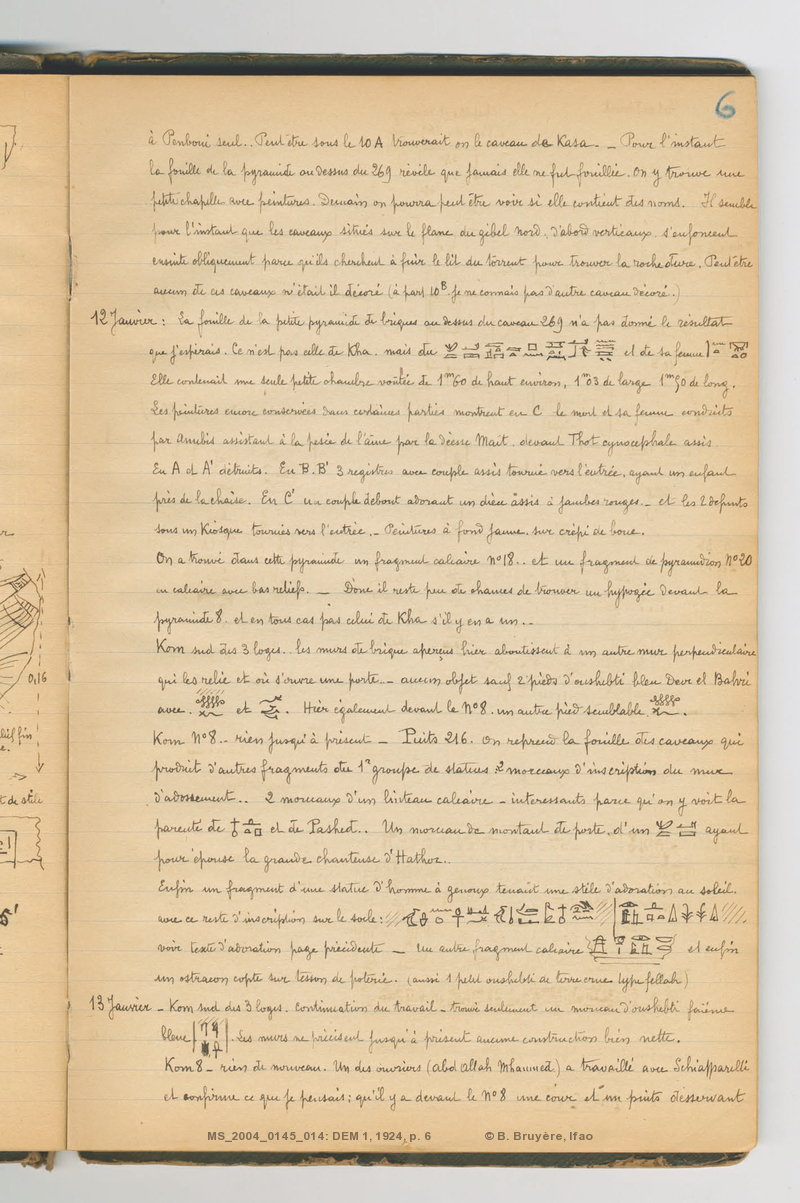 6
à Penboui seul.. Peut être sous le 10A trouverait on le caveau de Kasa. _ Pour l'instant
la fouille de la pyramide au dessus du 269 révèle que jamais elle ne fut fouillée. On y trouve une
petite chapelle avec peintures. Demain on pourra peut être voir si elle contient des noms. Il semble
pour l'instant que les caveaux situés sur le flanc du gébel Nord, d'abord verticaux, s'enfoncent
ensuite obliquement parce qu'ils cherchent à fuir le lit du torrent pour trouver la roche dure. Peut être
aucun de ces caveaux n'était il décoré (à part 10B. Je ne connais pas d'autre caveau décoré.)
12 Janvier : La fouille de la petite pyramide de briques au dessus du caveau 269 n'a pas donné le résultat
que j'espérais. Ce n'est pas celle de Kha. mais du et de sa femme
Elle contenait une seule petite chambre voûtée de 1m60 de haut environ, 1m03 de large 1m90 de long.
Les peintures encore conservées dans certaines parties montrent en C le mort et sa femme conduits
par Anubis assistant à la pesée de l'âme par la déesse Mait. devant Thot cynocephale assis
En A et A' détruits. En B.B' 3 registres avec couple assis tourné vers l'entrée, ayant un enfant
près de la chaise. En C' un couple debout adorant un dieu assis à jambes rouges _ et les 2 défunts
sous un Kiosque tournés vers l'entrée. _ Peintures à fond jaune. sur crépi de boue.
On a trouvé dans cette pyramide un fragment calcaire n°18.. et un fragment de pyramidion N°20
en calcaire avec bas reliefs. _ Donc il reste peu de chances de trouver un hypogée devant la
pyramide 8. et en tous cas pas celui de Kha s'il y en a un..
Kom sud des 3 loges. les murs de brique aperçus hier aboutissent à un autre mur perpendiculaire
qui les relie et où s'ouvre une porte. _ aucun objet sauf 2 pieds d'oushebti bleu Deir el Bahri
avec et . Hier également devant le N°8. un autre pied semblable .
Kom N°8. _ rien jusqu'à présent _ Puits 216. On reprend la fouille des caveaux qui
produit d'autres fragments du 1r groupe de statues 2 morceaux d'inscription du mur
d'adossement.. 2 morceaux d'un linteau calcaire _ interessants parce qu'on y voit la
parenté de et de Pashed.. Un morceau de montant de porte, d'un ayant
pour épouse la grande chanteuse d'Hathor..
Enfin un fragment d'une statue d'homme à genoux tenant une stèle d'adoration au soleil.
avec ce reste d'inscription sur le socle:
voir texte d'adoration page précédente _ Un autre fragment calcaire et enfin
un ostracon copte sur tesson de poterie. (aussi 1 petit oushebti de terre crue type fellah)
13 Janvier _ Kom sud des 3 loges. continuation du travail _ trouvé seulement un morceau d'oushebti faïence
bleue . Les murs ne précisent jusqu'à présent aucune construction bien nette.
Kom 8 _ rien de nouveau. Un des ouvriers (Abd Allah Mhammed) a travaillé avec Schiapparelli
et confirme ce que je pensais; qu'il y a devant le N°8 une cour et un puits desservant
0,16
MS_2004_0145_014: DEM 1, 1924, p. 6 © B. Bruyère, Ifao